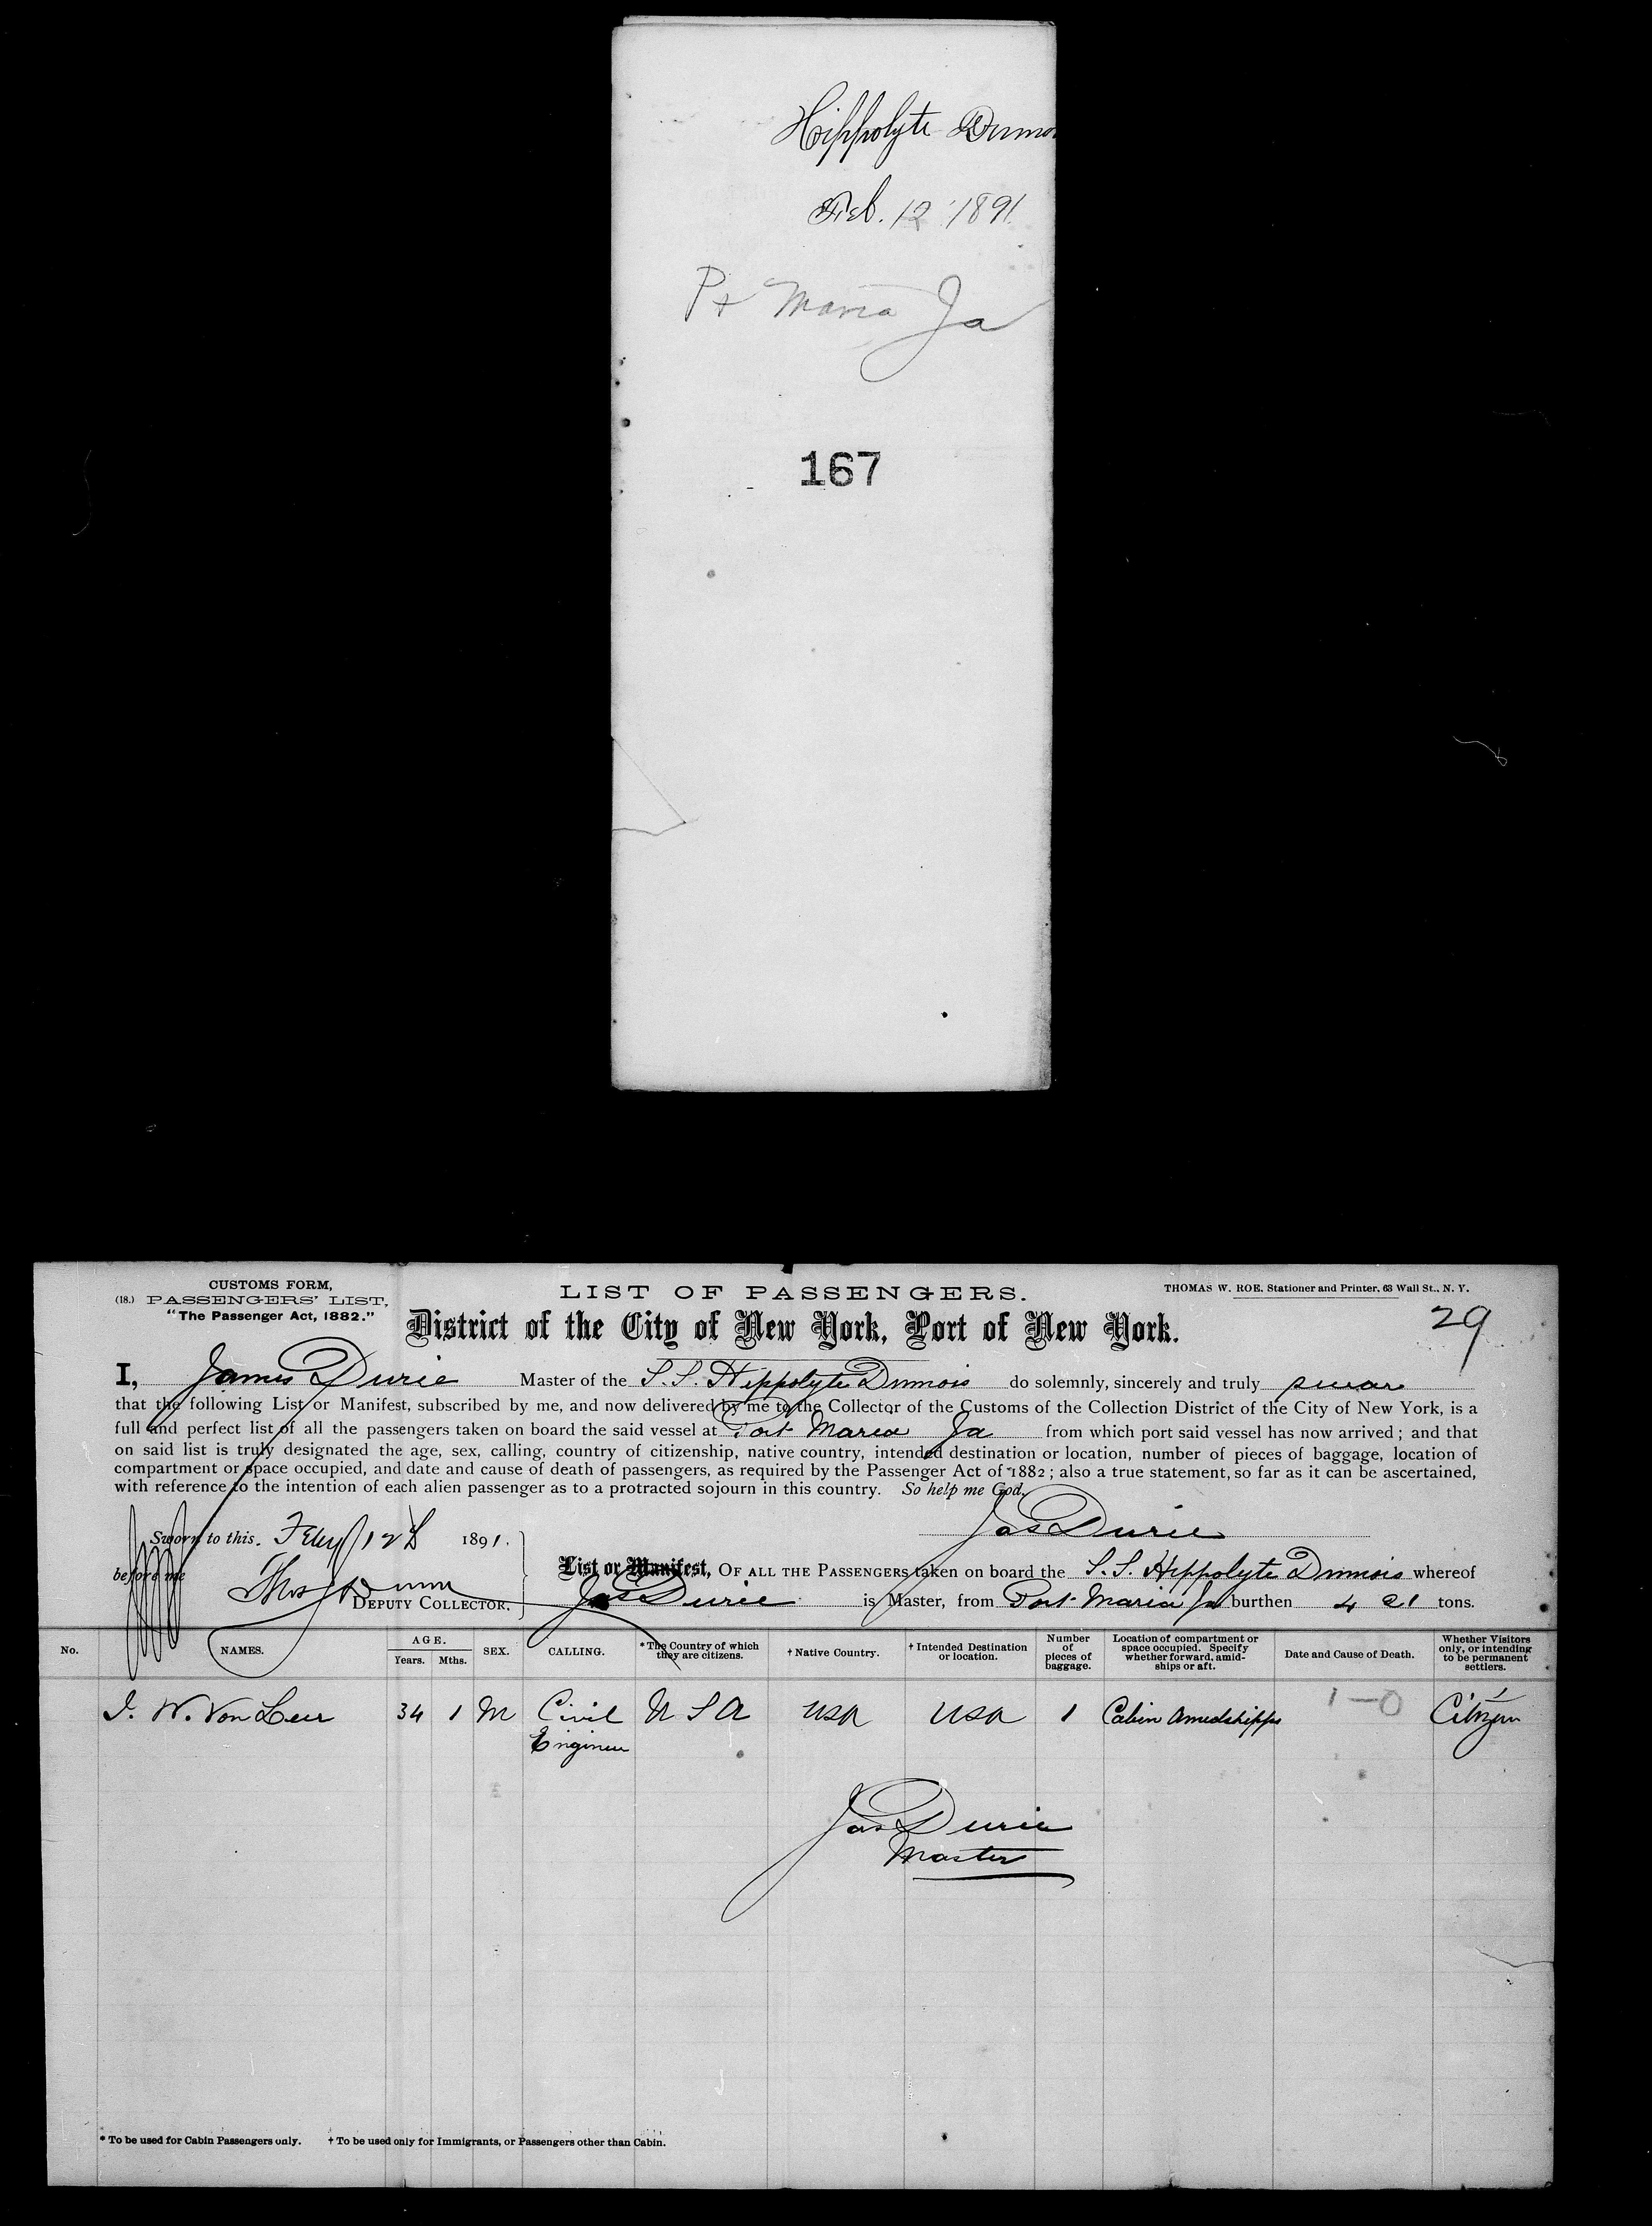 Hippolyte Dumo
Feb. 12 1891
Pt Maria Ja
167
CUSTOMS FORM,
(18.) PASSENGERS' LIST,
"The Passenger Act, 1882."
LIST OF PASSENGERS.
THOMAS W. ROE, Stationer and Printer, 63 Wall St., N. Y.
District of the City of New York, Port of New York.
29
I, James Durie Master of the S.S. Hippolyte Dumois do solemnly, sincerely and truly swear
that the following List or Manifest, subscribed by me, and now delivered by me to the Collector of the Customs of the Collection District of the City of New York, is a
full and perfect list of all the passengers taken on board the said vessel at Port Maria Ja from which port said vessel has now arrived; and that
on said list is truly designated the age, sex, calling, country of citizenship, native country, intended destination or location, number of pieces of baggage, location of
compartment or space occupied, and date and cause of death of passengers, as required by the Passenger Act of 1882; also a true statement, so far as it can be ascertained,
with reference to the intention of each alien passenger as to a protracted sojourn in this country. So help me God.
Jas Durie
Sworn to this. 12 1891.
before me
Dunn
DEPUTY COLLECTOR.
List or Manifest, OF ALL THE PASSENGERS taken on board the S.S. Hippolyte Dumois whereof
Jas Durie is Master, from Port Maria Ja burthen 421 tons.
No. NAMES. AGE. Years. Mths. SEX. CALLING. *The Country of which they are citizens. †Native Country. †Intended Destination or location. Number of pieces of baggage. Location of compartment or space occupied. Specify whether forward, amidships or aft. Date and Cause of Death. Whether Visitors only, or intending to be permanent settlers.
W. Von Leer 34 1 M Civil Engineer U S A USA USA 1 Cabin Amedshipps 1-0 Citizen
Jas Durie
Master
* To be used for Cabin Passengers only. † To be used only for Immigrants, or Passengers other than Cabin.